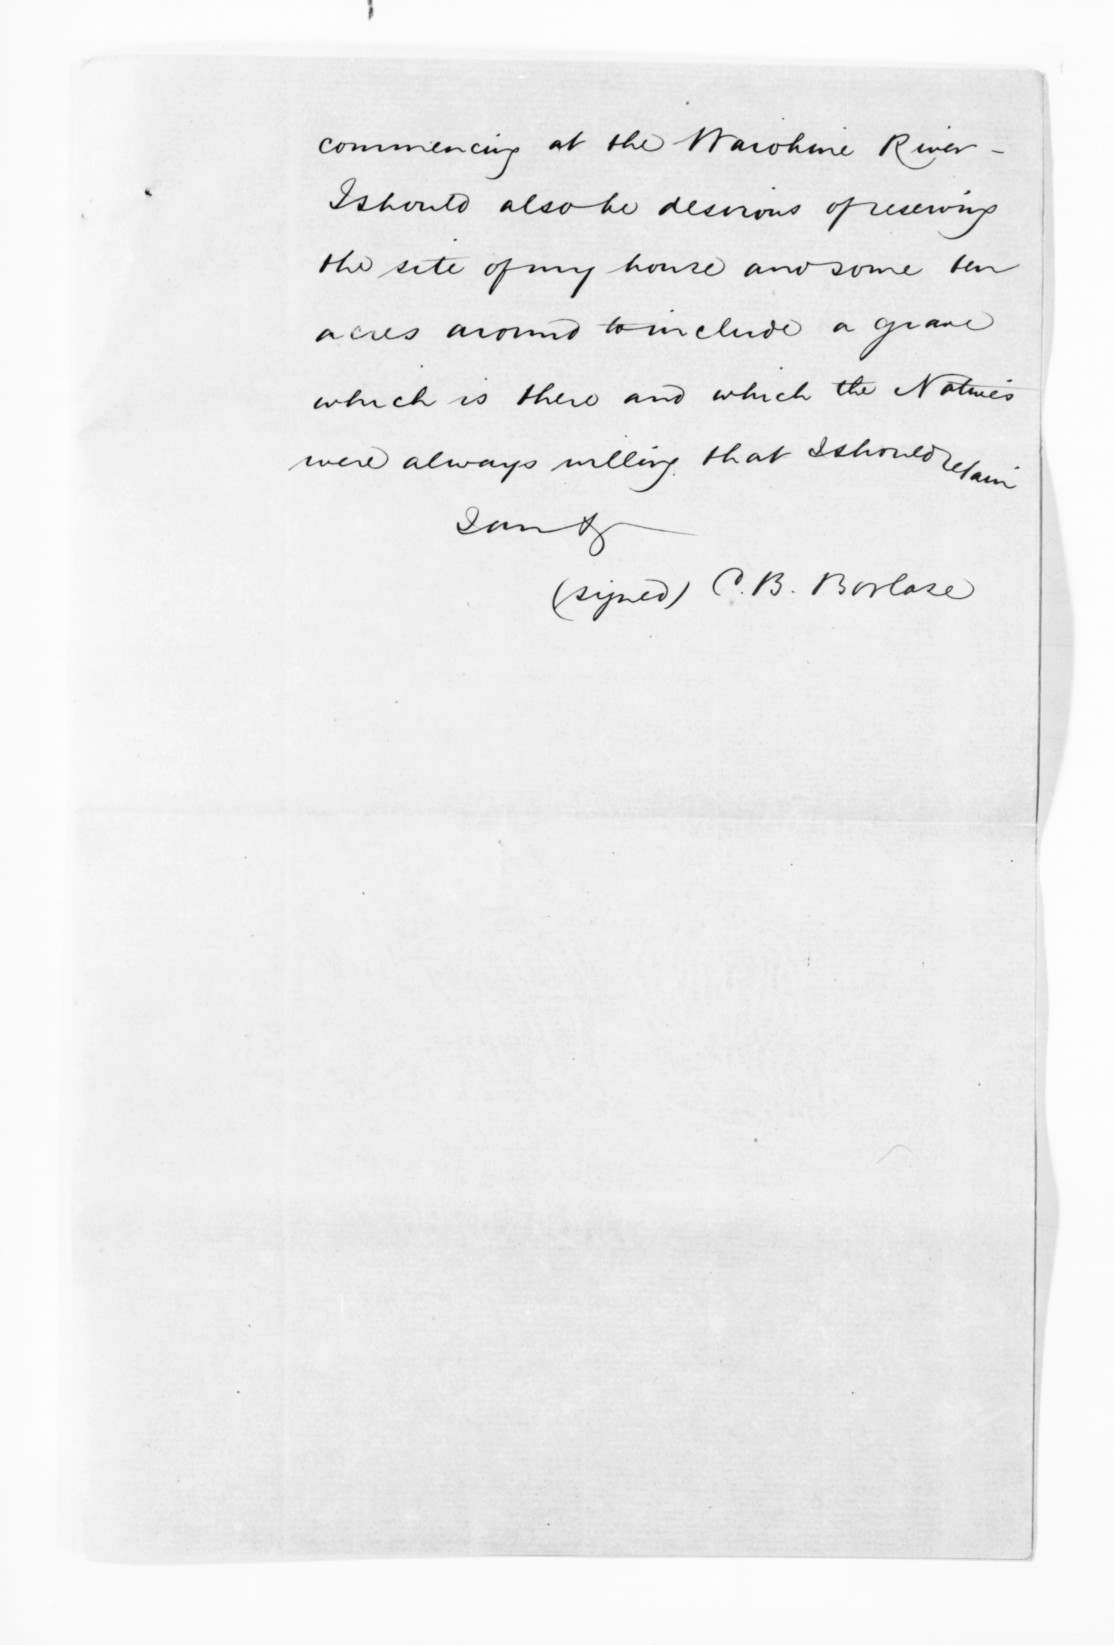 commencing at the Waiohine River -
I should also be desirous of reserving
the site of my house and some ten
acres around to include a grave
which is there and which the Natives
were always willing that I should retain
I am &c
(signed) C. B. Borlase